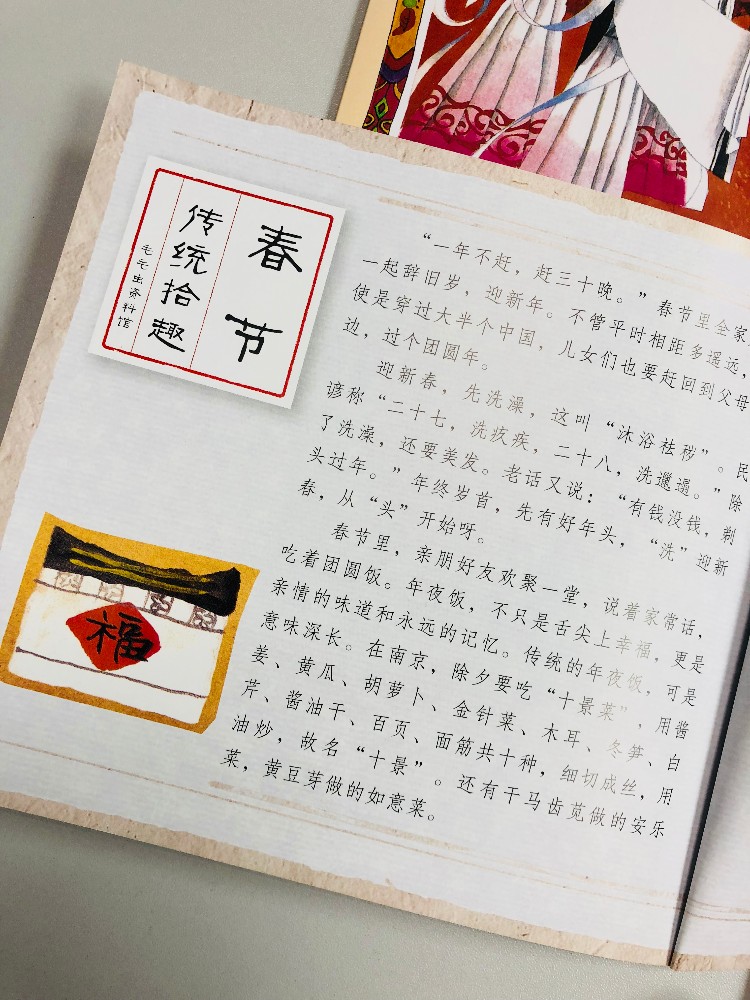 春节
传统拾趣
毛毛虫资料馆
“一年不赶，赶三十晚。”春节里全家
一起辞旧岁，迎新年。不管平时相距多遥远，
使是穿过大半个中国，儿女们也要赶回到父母
边，过个团圆年。
迎新春，先洗澡，这叫“沐浴祛秽”。民
谚称“二十七，洗疚疾，二十八，洗邋遢。”除
了洗澡，还要美发。老话又说：“有钱没钱，剃
头过年。”年终岁首，先有好年头，“洗”迎新
春，从“头”开始呀。
春节里，亲朋好友欢聚一堂，说着家常话，
吃着团圆饭。年夜饭，不只是舌尖上幸福，更是
亲情的味道和永远的记忆。传统的年夜饭，可是
意味深长。在南京，除夕要吃“十景菜”，用酱
姜、黄瓜、胡萝卜、金针菜、木耳、冬笋、白
芹、酱油干、百页、面筋共十种，细切成丝，用
油炒，故名“十景”。还有干马齿苋做的安乐
菜，黄豆芽做的如意菜。
福